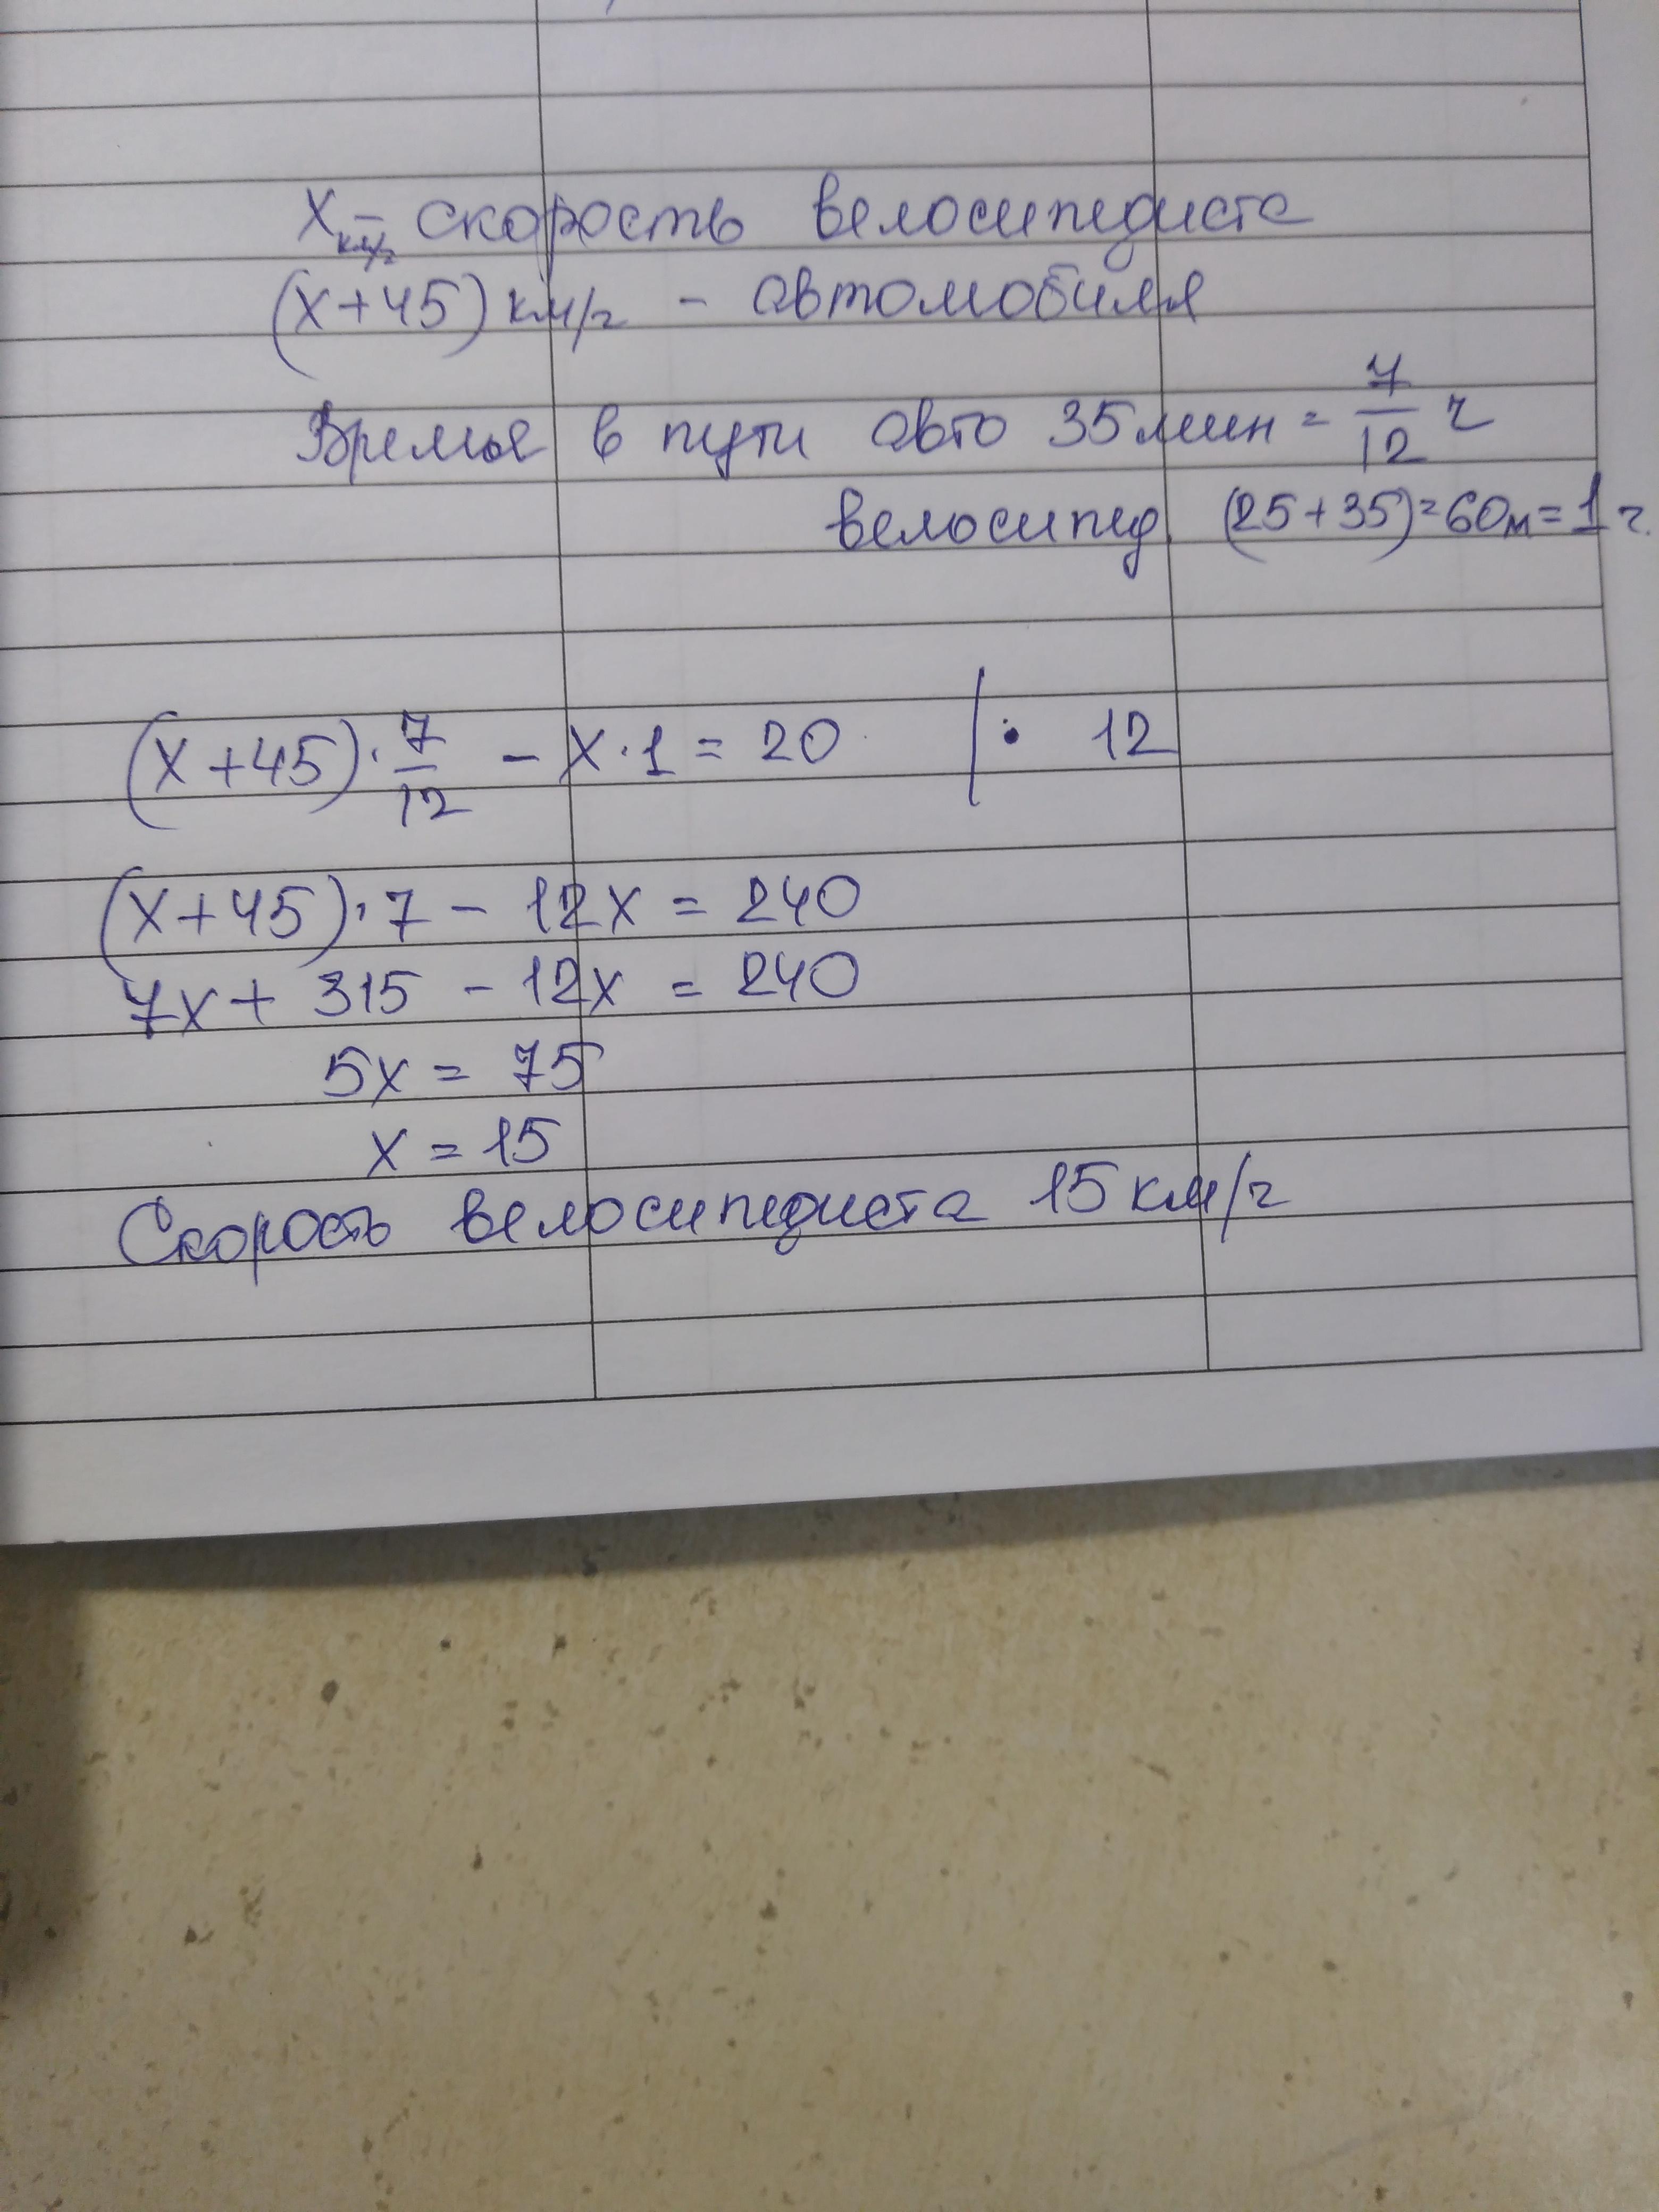 x км/ч - скорость велосипедиста
(x+45) км/ч - автомобиля
Время в пути авто 35 мин = 7/12 ч
велосипед. (25+35)=60м=1 ч.
(x+45)·7/12 - x·1 = 20 |· 12
(x+45)·7 - 12x = 240
7x + 315 - 12x = 240
5x = 75
x = 15
Скорость велосипедиста 15 км/ч